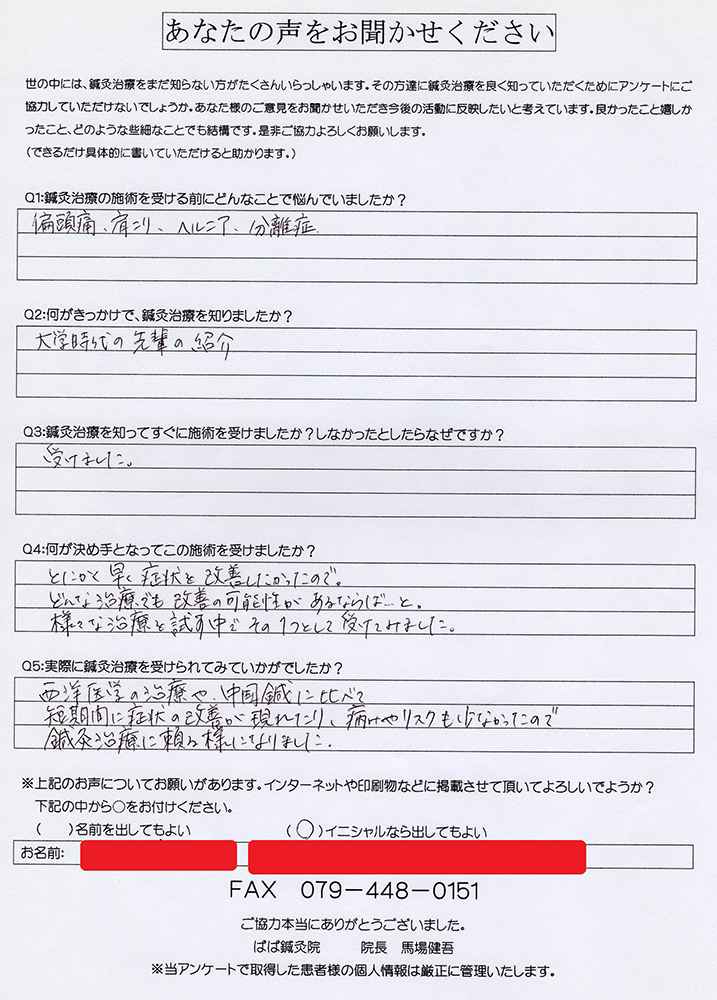 あなたの声をお聞かせください
世の中には、鍼灸治療をまだ知らない方がたくさんいらっしゃいます。その方達に鍼灸治療を良く知っていただくためにアンケートにご
協力していただけないでしょうか。あなた様のご意見をお聞かせいただき今後の活動に反映したいと考えています。良かったこと嬉しか
ったこと、どのような些細なことでも結構です。是非ご協力よろしくお願いします。
(できるだけ具体的に書いていただけると助かります。)
Q1:鍼灸治療の施術を受ける前にどんなことで悩んでいましたか？
偏頭痛、肩こり、ヘルニア、分離症
Q2:何がきっかけで、鍼灸治療を知りましたか？
大学時代の先輩の紹介
Q3:鍼灸治療を知ってすぐに施術を受けましたか？しなかったとしたらなぜですか？
受けました。
Q4:何が決め手となってこの施術を受けましたか？
とにかく早く症状を改善したかったので。
どんな治療でも改善の可能性があるならば…と。
様々な治療を試す中でその1つとして受けてみました。
Q5:実際に鍼灸治療を受けられてみていかがでしたか？
西洋医学の治療や、中国鍼に比べて
短期間に症状の改善が現れたり、痛みやリスクも少なかったので
鍼灸治療に頼る様になりました。
※上記のお声についてお願いがあります。インターネットや印刷物などに掲載させて頂いてよろしいでようか？
下記の中から○をお付けください。
(　　)名前を出してもよい　　　　　(○)イニシャルなら出してもよい
お名前:
FAX　079－448－0151
ご協力本当にありがとうございました。
ばば鍼灸院　　　院長　馬場健吾
※当アンケートで取得した患者様の個人情報は厳正に管理いたします。